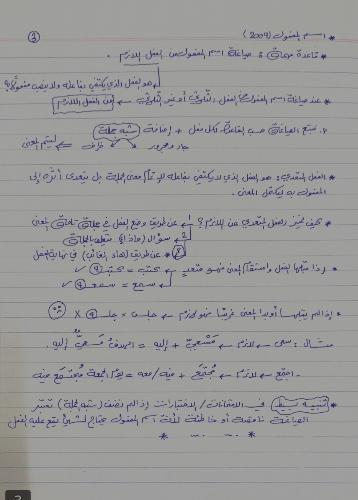 (3)
* اسم المفعول (2009)
* قاعدة مهمة: صياغة اسم المفعول من الفعل اللازم.
هو الفعل الذي يكتفي بفاعله ولا ينصب مفعولًا به
* عند صياغة اسم المفعول من الفعل الثلاثي أو غير الثلاثي ← من الفعل اللازم
تتبع الصياغة حسب القاعدة لكل فعل + إضافة شبه جملة
جار ومجرور ظرف ← ليتم المعنى
* الفعل المتعدي: هو الفعل الذي لا يكتفي بفاعله لإتمام معنى الجملة بل يتعدى أثره إلى
المفعول به ليكتمل المعنى.
* كيف نميز الفعل المتعدي عن اللازم؟ 1- عن طريق وضع الفعل في المعنى
2- سؤال (ماذا)
* عن طريق (هاء الغائب) في نهاية الفعل
* إذا قبلها الفعل واستقام المعنى فهو متعدٍ ← كتب = كتبه ✓
← سمع = سمعه ✓
* إذا لم يقبلها أو بدا المعنى غريبًا فهو لازم ← جلس = جلسه X
مثال: سعى ← لازم ← مَسْعِيّ + إليه = الهدف مَسعيّ إليه.
- اجتمع ← لازم ← مُجتمَع + فيه/معه = يوم الجمعة مُجتمَع فيه
* تنبيه بسيط في الامتحانات / الاختبارات إذا لم نضف (شبه الجملة) تعتبر
الصياغة ناقصة أو خاطئة لأن اسم المفعول يحتاج لشيء يقع عليه الفعل
* ... ... *